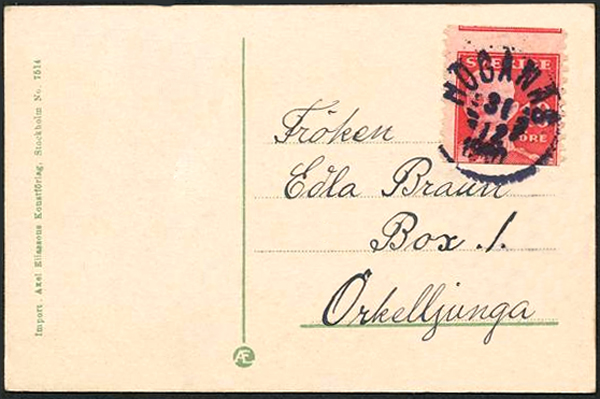 SVERIGE
HÖGANÄS
31
12
ÖRE
Fröken
Edla Braun
Box 1.
Örkelljunga
Import. Axel Eliassons Konstförlag, Stockholm No. 7514
AE